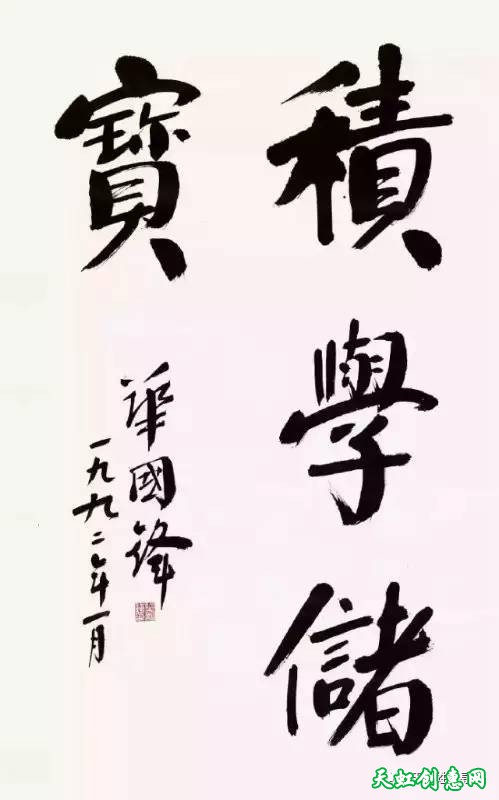 積學儲
寶
華國鋒
一九九二年一月
天虹创意网